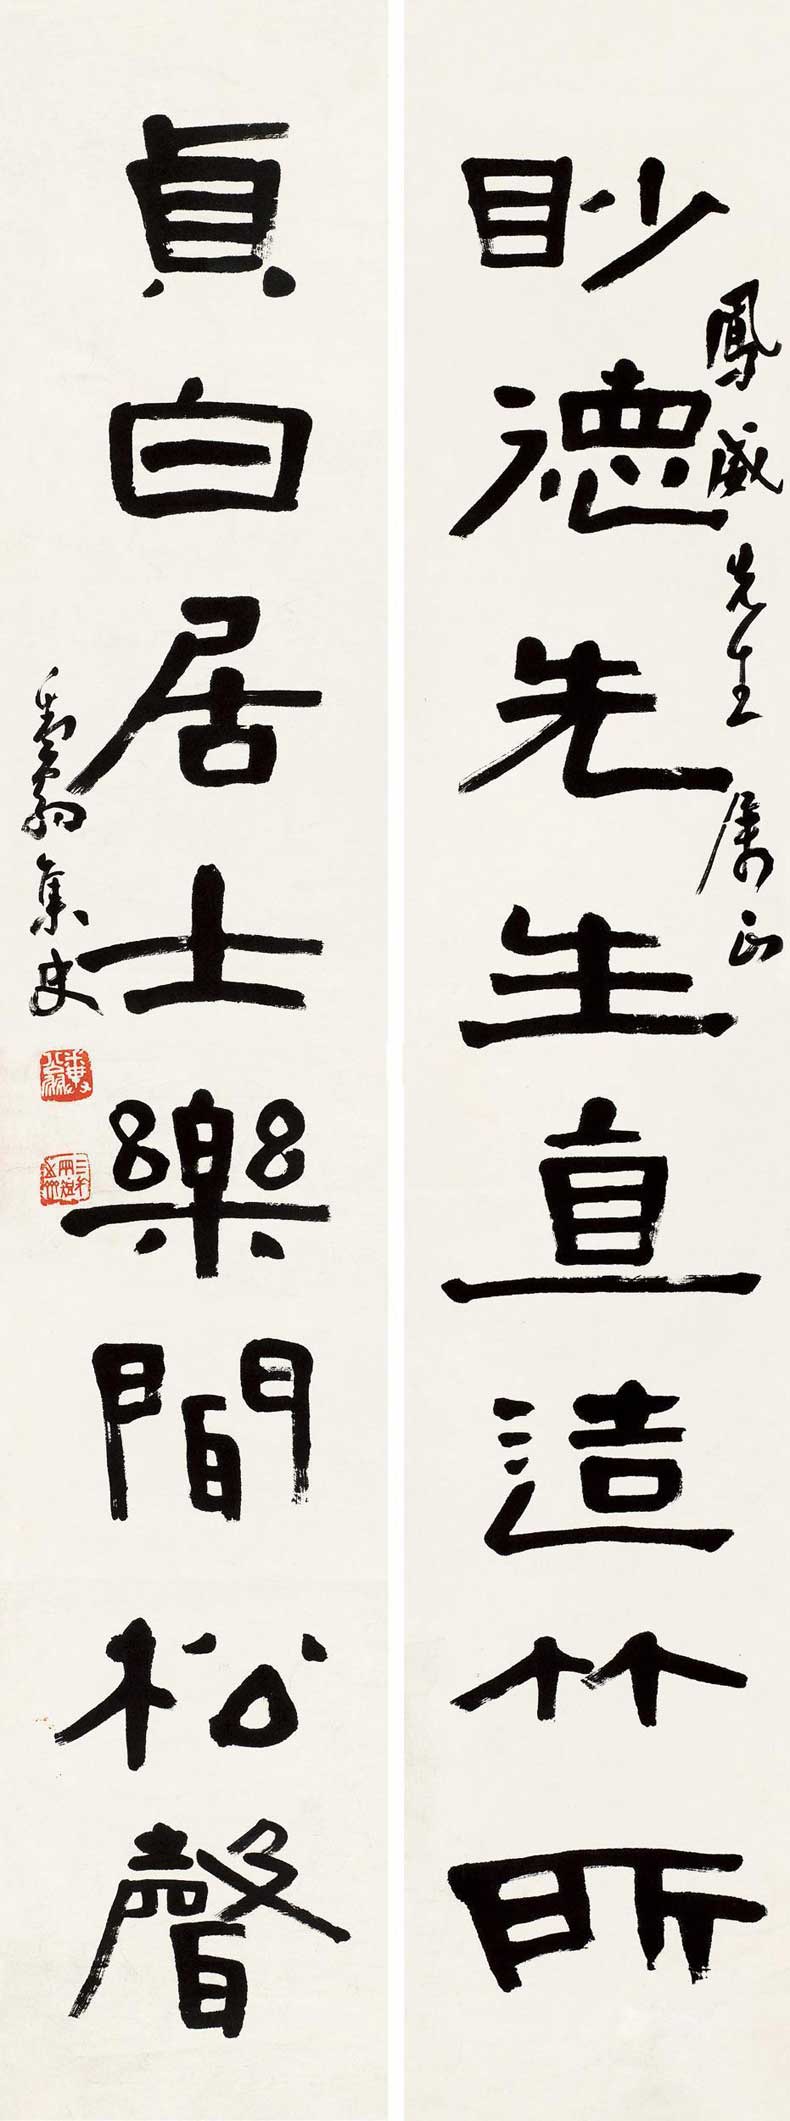 鳳威先生属正
眇德先生直造竹所
貞白居士樂聞松聲
翁集史